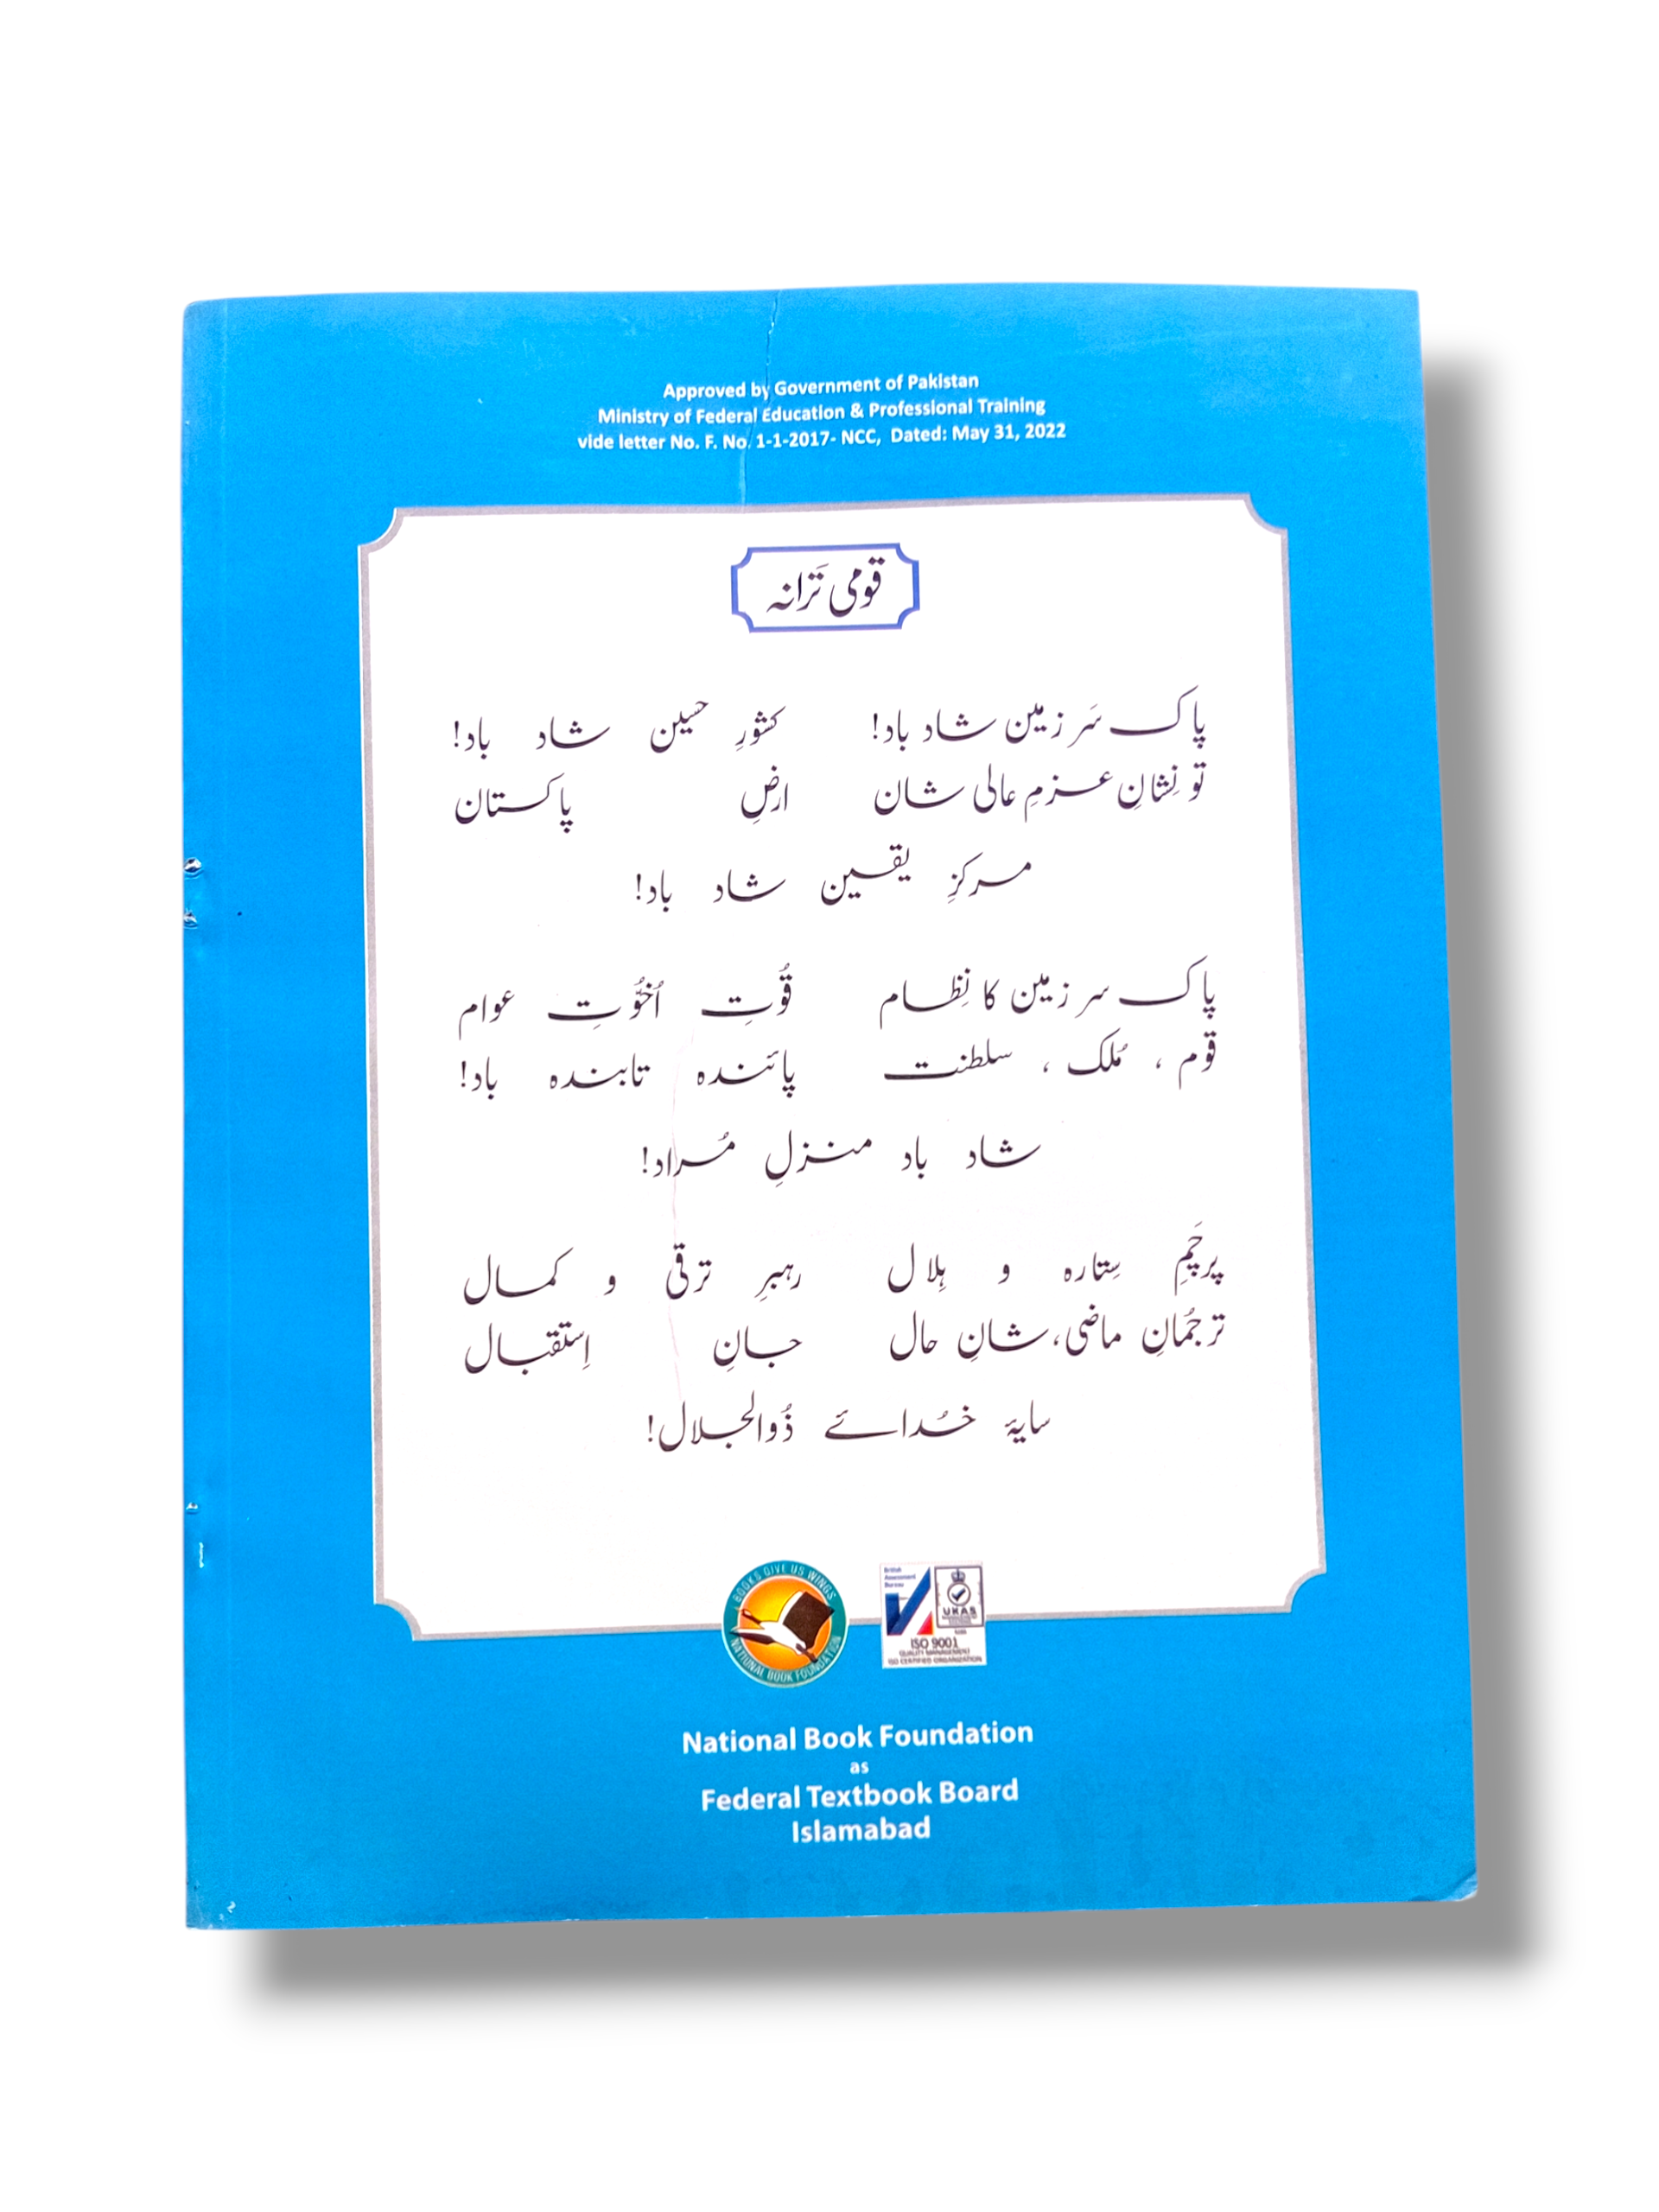 Approved by Government of Pakistan
Ministry of Federal Education & Professional Training
vide letter No. F. No. 1-1-2017- NCC, Dated: May 31, 2022
قومی تَرانہ
پاک سَر زمین شاد باد! کشورِ حسین شاد باد!
تو نِشانِ عزمِ عالی شان ارضِ پاکستان
مرکزِ یقین شاد باد!
پاک سر زمین کا نِظام قُوّتِ اُخُوّتِ عوام
قوم ، مُلک ، سلطنت پائندہ تابندہ باد!
شاد باد منزلِ مُراد!
پرچَمِ سِتارہ و ہِلال رہبرِ ترقی و کمال
ترجُمانِ ماضی، شانِ حال جانِ اِستقبال
سایۂ خُدائے ذُوالجلال!
BOOKS GIVE US WINGS
NATIONAL BOOK FOUNDATION
British Assessment Bureau
UKAS
ISO 9001
QUALITY MANAGEMENT
ISO CERTIFIED ORGANIZATION
National Book Foundation
as
Federal Textbook Board
Islamabad